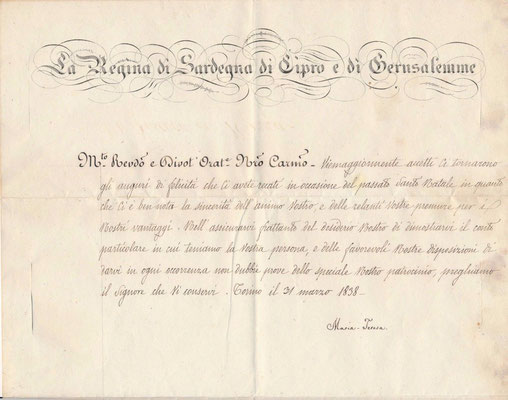 La Regina di Sardegna di Cipro e di Gerusalemme
M.to Revdo e Divot' Orat.e Nro Carmo - Viemaggiormente accetti ci tornarono
gli auguri di felicità che ci avete recati in occasione del passato Santo Natale, in quanto
che ci è ben nota la sincerità dell'animo Vostro, e delle zelanti Vostre premure per i
Nostri vantaggi. Nell'assicurarvi frattanto del desiderio Nostro di dimostrarvi il conto
particolare in cui teniamo la Vostra persona, e delle favorevoli Nostre disposizioni di
darvi in ogni occorrenza non dubbie prove dello speciale Nostro patrocinio, preghiamo
il Signore che Vi conservi. Torino il 31 marzo 1838_
Maria Teresa